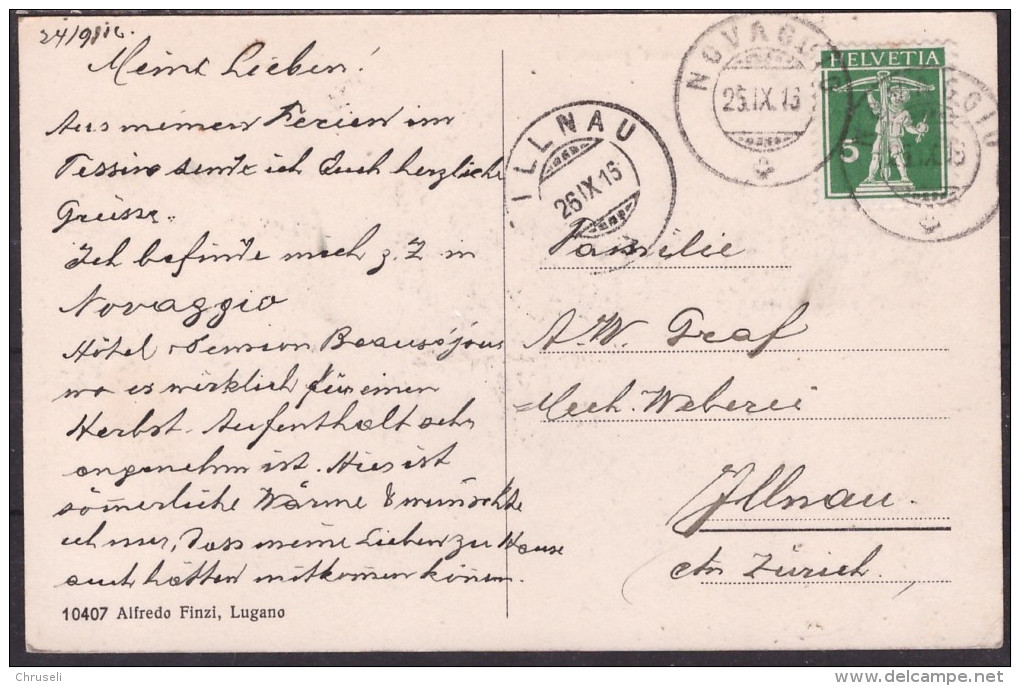 24/9 16.
Meine Lieben!
Aus meinen Ferien im
Tessin sende ich Euch herzliche
Grüsse.
Ich befinde mich z. Z in
Novaggio
Hôtel Pension Beauséjour
wo es wirklich für einen
Herbst-Aufenthalt sehr
angenehm ist. Hier ist
sommerliche Wärme & wünschte
ich nur, dass meine Lieben zu Hause
auch hätten mitkommen können.
10407 Alfredo Finzi, Lugano
NOVAGGIO
25.IX.16
HELVETIA
5
NOVAGGIO
ILLNAU
26.IX.16
Familie
A. W. Graf
Mech. Weberei
Illnau.
Ctn Zürich.
Chruseli
delcampe.net